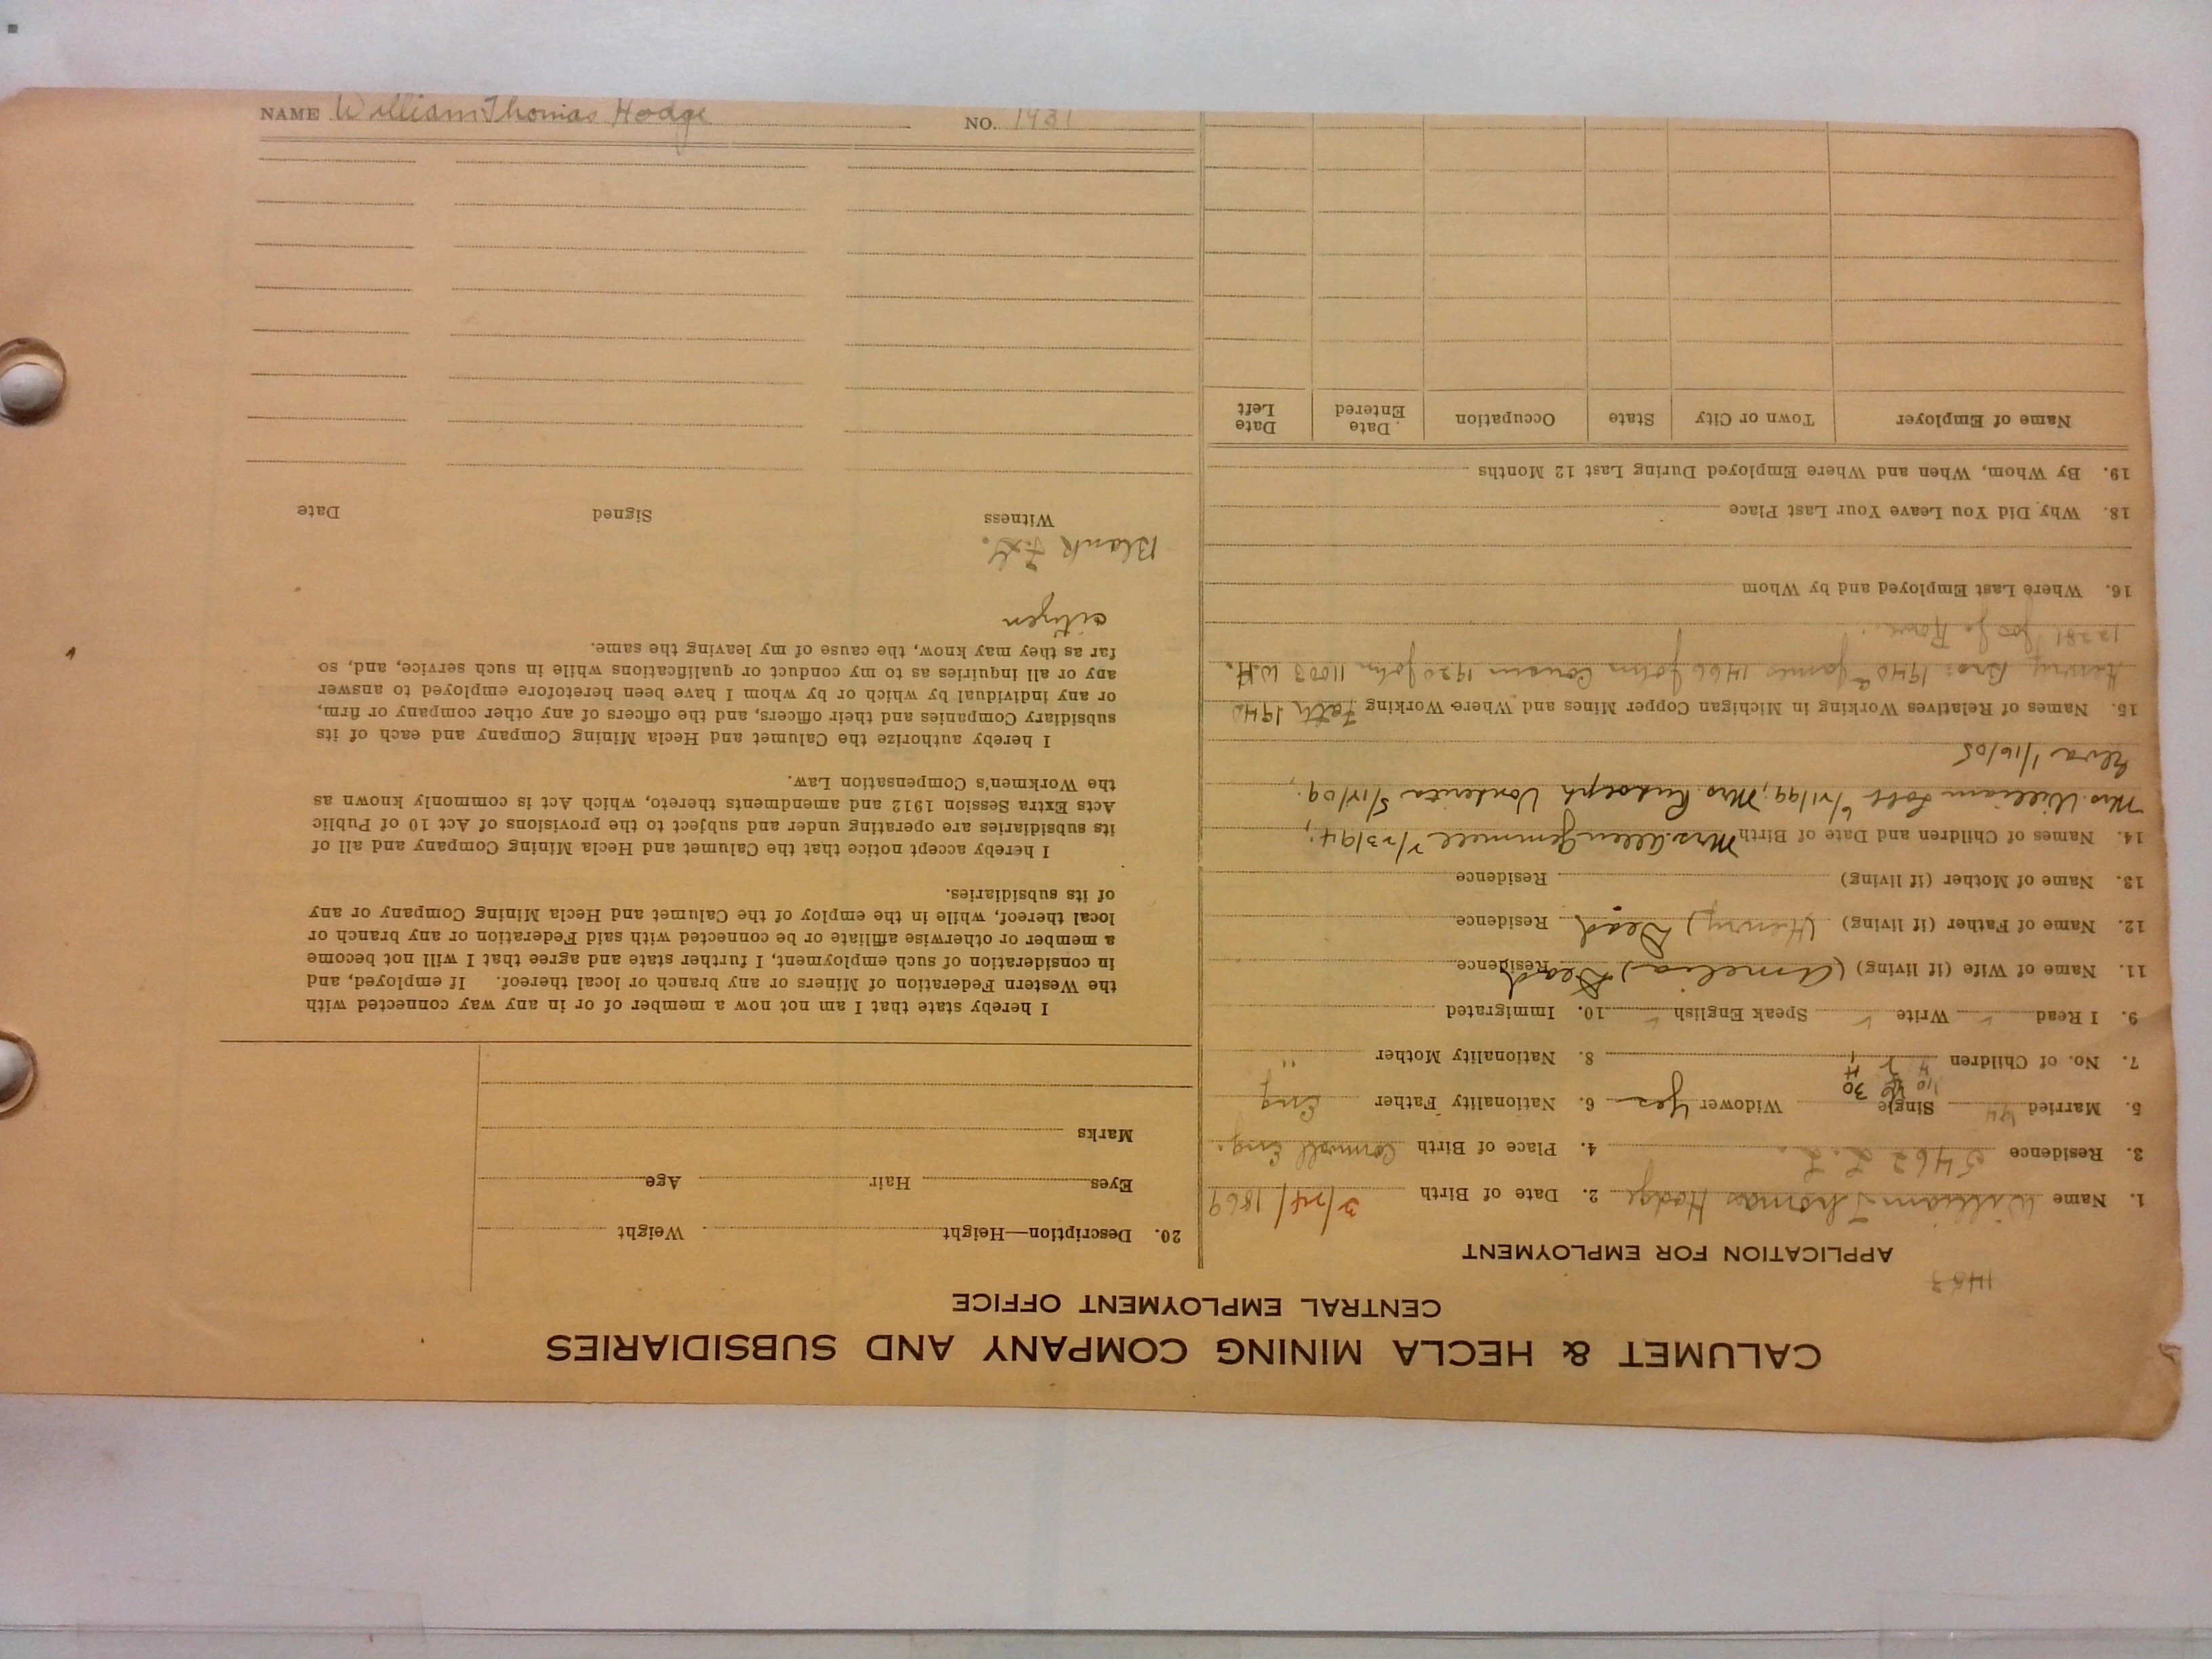 CALUMET & HECLA MINING COMPANY AND SUBSIDIARIES
CENTRAL EMPLOYMENT OFFICE
1453
APPLICATION FOR EMPLOYMENT
1. Name William Thomas Hodge 2. Date of Birth 3/24/1869
3. Residence 5462 L.L. 4. Place of Birth Cornwall Eng.
5. Married Single Widower Yes 6. Nationality Father Eng
7. No. of Children 8. Nationality Mother "
9. I Read ✓ Write ✓ Speak English ✓ 10. Immigrated
11. Name of Wife (if living) (Amelia) Dead Residence
12. Name of Father (if living) (Henry) Dead Residence
13. Name of Mother (if living) Residence
14. Names of Children and Date of Birth Mrs. Allen Gemmell 2/23/94;
Mrs. William 6/21/99; Mrs Rudolph 5/12/09.
Elva 1/16/05
15. Names of Relatives Working in Michigan Copper Mines and Where Working Fath 1940
Henry Bro: 1940 James 1466 John 1920 John 11003 W.H.
12281 Jos J. Rowe.
16. Where Last Employed and by Whom
18. Why Did You Leave Your Last Place
19. By Whom, When and Where Employed During Last 12 Months
Name of Employer Town or City State Occupation Date Entered Date Left
20. Description—Height Weight
Eyes Hair Age
Marks
I hereby state that I am not now a member of or in any way connected with
the Western Federation of Miners or any branch or local thereof. If employed, and
in consideration of such employment, I further state and agree that I will not become
a member or otherwise affiliate or be connected with said Federation or any branch or
local thereof, while in the employ of the Calumet and Hecla Mining Company or any
of its subsidiaries.
I hereby accept notice that the Calumet and Hecla Mining Company and all of
its subsidiaries are operating under and subject to the provisions of Act 10 of Public
Acts Extra Session 1912 and amendments thereto, which Act is commonly known as
the Workmen's Compensation Law.
I hereby authorize the Calumet and Hecla Mining Company and each of its
subsidiary Companies and their officers, and the officers of any other company or firm,
or any individual by which or by whom I have been heretofore employed to answer
any or all inquiries as to my conduct or qualifications while in such service, and, so
far as they may know, the cause of my leaving the same.
citizen
Blank
Witness Signed Date
NAME William Thomas Hodge NO. 1931